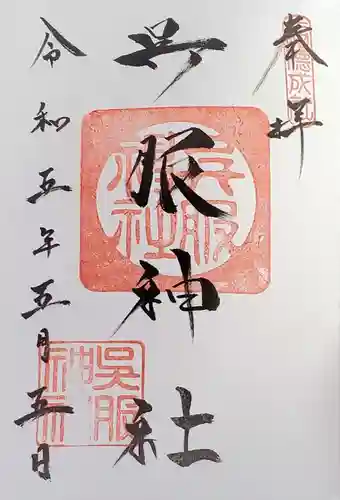 奉拝
呉服神社
令和五年五月五日
呉服神社
呉服